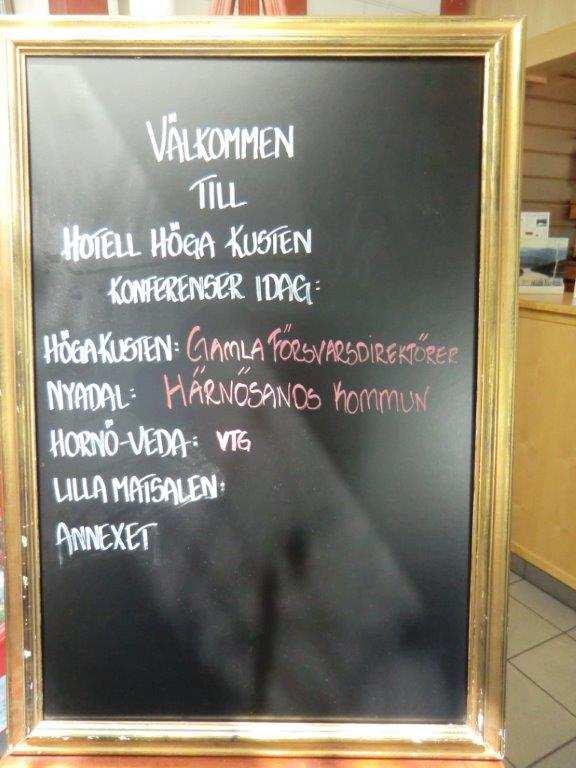 VÄLKOMMEN
TILL
HOTELL HÖGA KUSTEN
KONFERENSER IDAG:
HÖGA KUSTEN: GAMLA FÖRSVARSDIREKTÖRER
NYADAL: HÄRNÖSANDS KOMMUN
HORNÖ-VEDA: VTG
LILLA MATSALEN:
ANNEXET